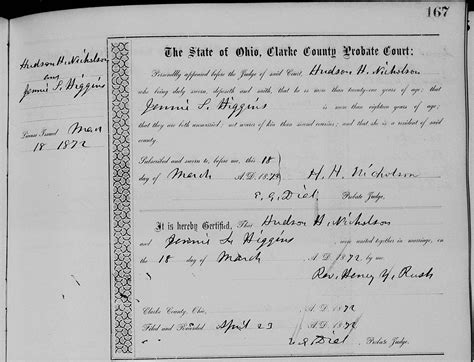 167
Hudson H. Nicholson
and
Jennie S. Higgins
License Issued March
18 1872
The State of Ohio, Clarke County Probate Court:
Personally appeared before the Judge of said Court, Hudson H. Nicholson
who being duly sworn, deposeth and saith, that he is more than twenty-one years of age; that
Jennie S. Higgins is more than eighteen years of age;
that they are both unmarried; not nearer of kin than second cousins; and that she is a resident of said
county.
Subscribed and sworn to, before me, this 18
day of March A.D. 1872 H. H. Nicholson
E. G. Dial Probate Judge.
It is hereby Certified, That Hudson H. Nicholson
and Jennie S. Higgins were united together in marriage, on
the 18 day of March A.D. 1872 by me
Rev. Henry Y. Rush
Clarke County, Ohio, A.D. 1872
Filed and Recorded April 23 A.D. 1872
E. G. Dial Probate Judge.